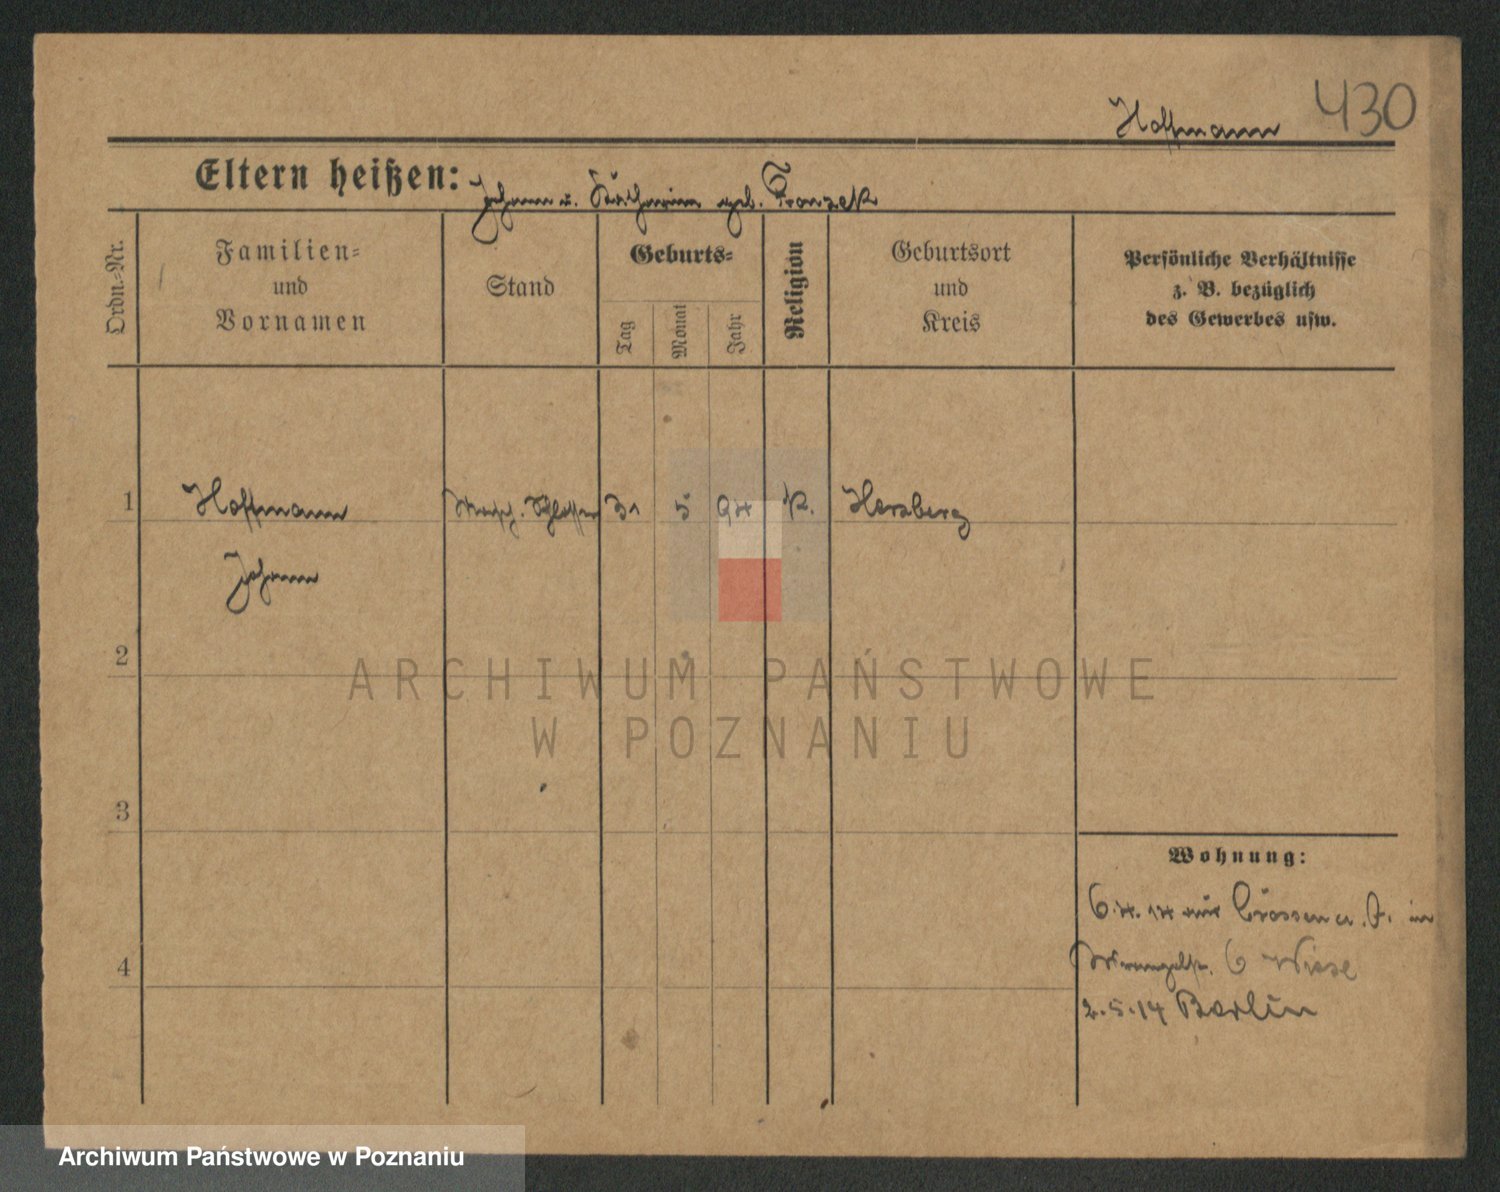 Hoffmann 430
Eltern heißen: Johann u. Katharina geb. Franzek
Ordn.-Nr.
Familien-
und
Vornamen
Stand
Geburts-
Tag
Monat
Jahr
Religion
Geburtsort
und
Kreis
Persönliche Verhältnisse
z. B. bezüglich
des Gewerbes usw.
1 Hoffmann Masch. Schlosser 31 5 94 K. Herzberg
Johann
2
3
4
Wohnung:
6.4.14 aus Crossen a. O. in
Wrangelstr. 6 Wiese
2.5.14 Berlin
ARCHIWUM PAŃSTWOWE
W POZNANIU
Archiwum Państwowe w Poznaniu